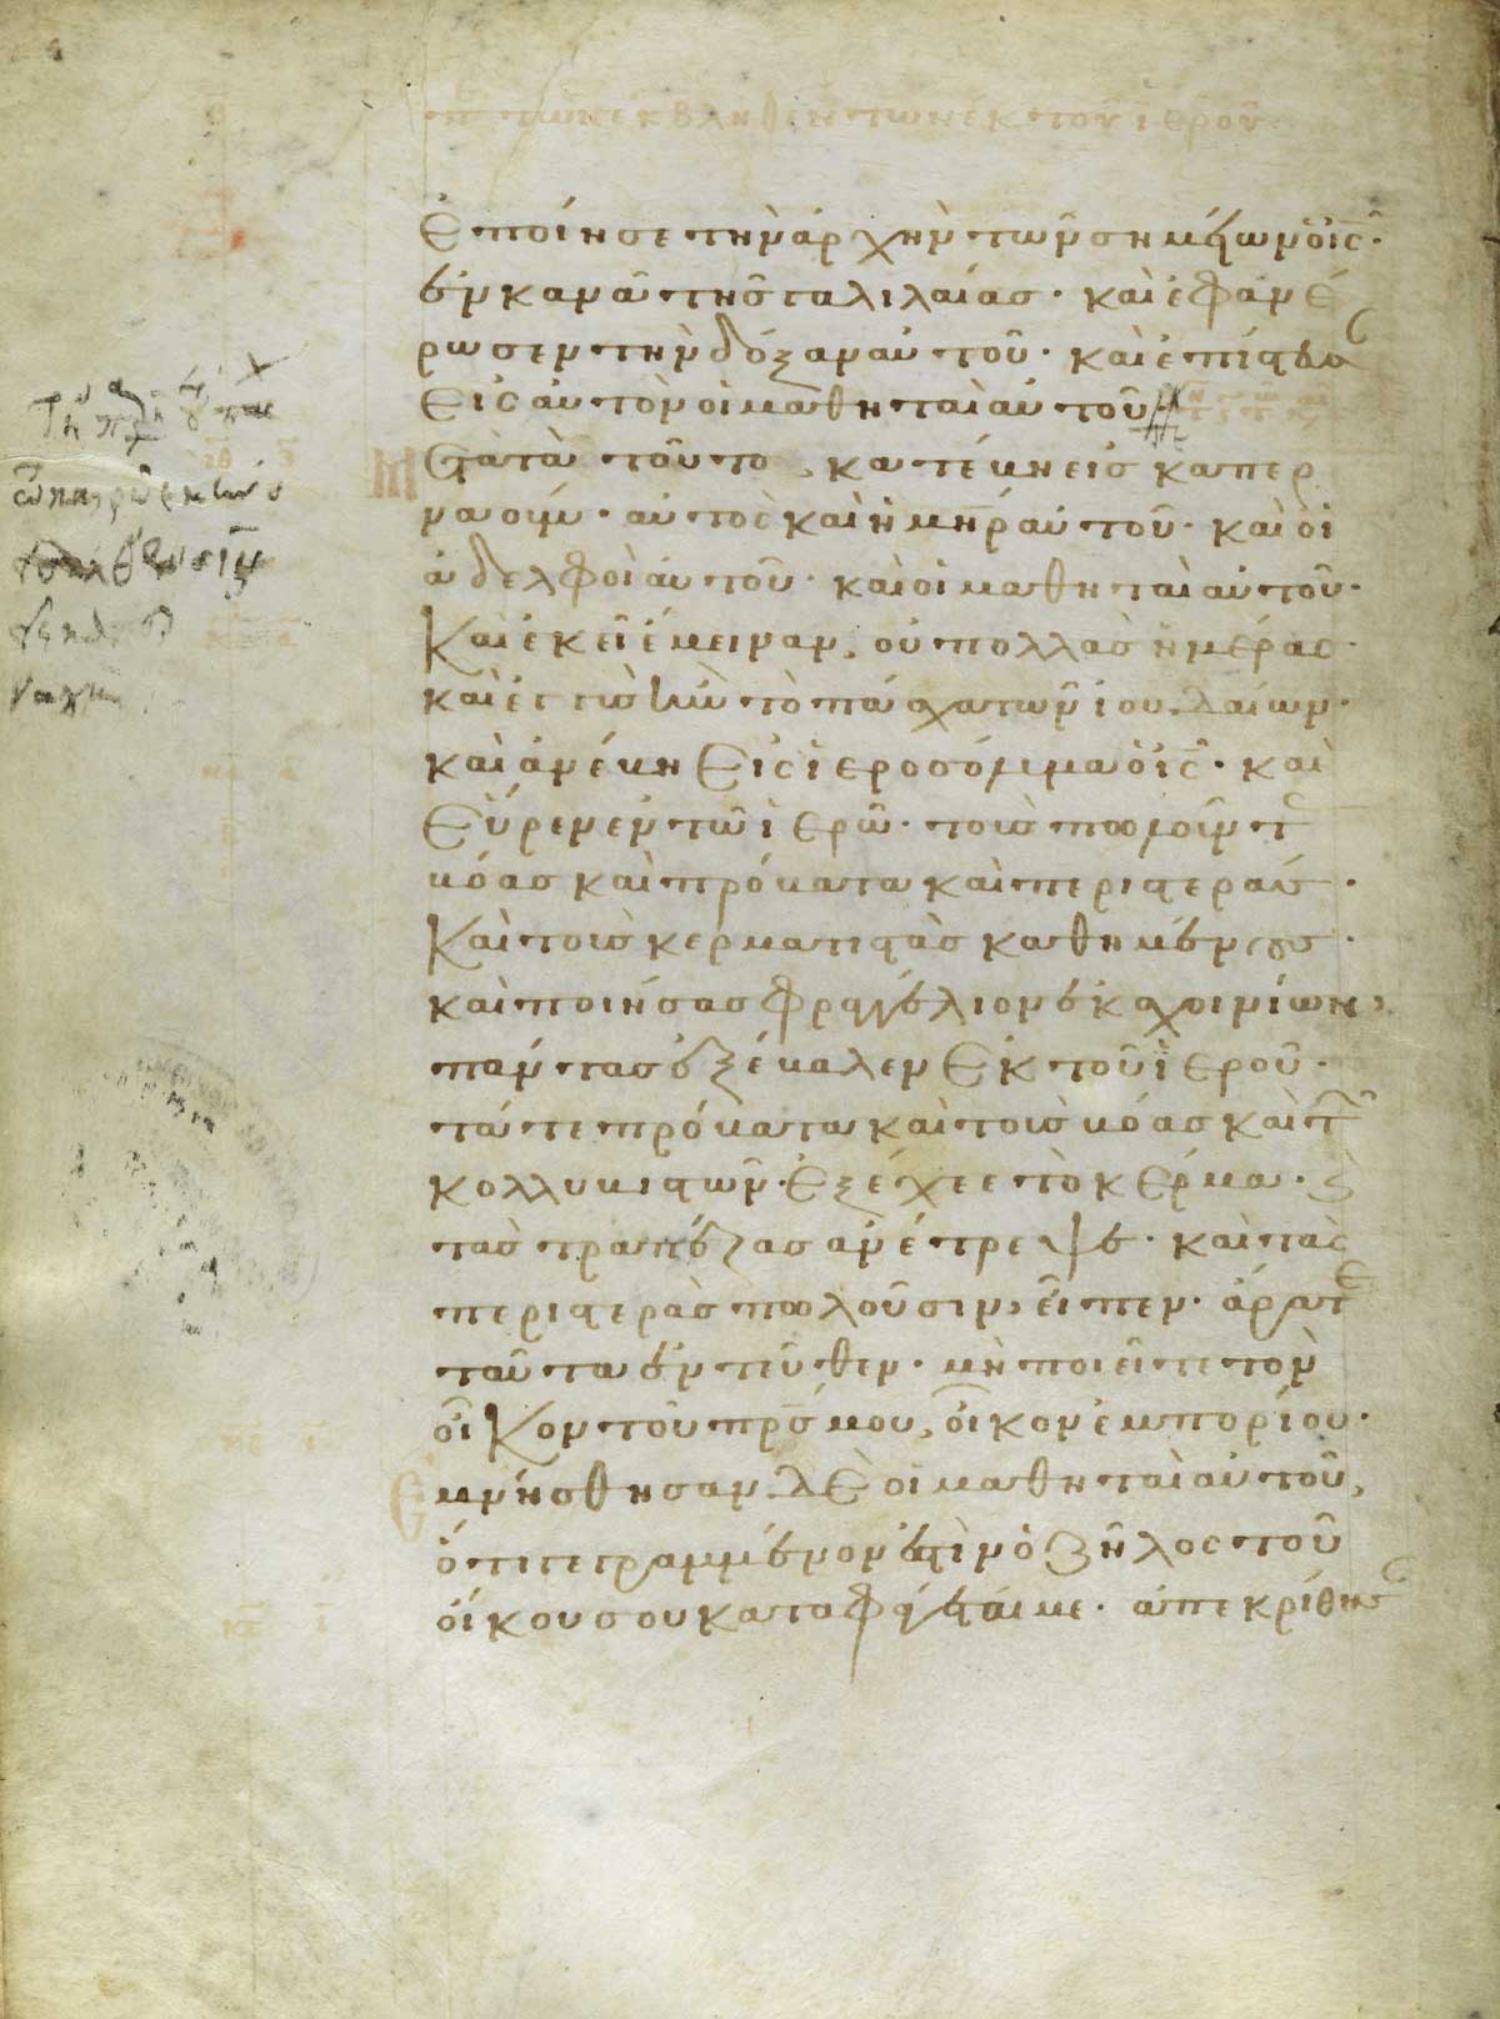 τῶν ἐκβληθέντων ἐκ τοῦ ἱεροῦ
Ἐποίησε τὴν ἀρχὴν τῶν σημείων ὁ ις̅·
ἐν κανᾶ τῆς γαλιλαίας· καὶ ἐφανέ
ρωσεν τὴν δόξαν αὐτοῦ· καὶ ἐπίστευσα
εἰς αὐτὸν οἱ μαθηταὶ αὐτοῦ
Μετὰ τοῦτο, κατέβη εἰς καπερ
ναούμ· αὐτὸς καὶ ἡ μηρ̅ αὐτοῦ· καὶ οἱ
ἀδελφοὶ αὐτοῦ· καὶ οἱ μαθηταὶ αὐτοῦ·
Καὶ ἐκεῖ ἔμειναν, οὐ πολλὰς ἡμέρας·
καὶ ἐγγὺς ἦν τὸ πάσχα τῶν ἰουδαίων·
καὶ ἀνέβη εἰς ἱεροσόλυμα ὁ ις̅· καὶ
εὗρεν ἐν τῶ ἱερῶ· τοὺς πωλοῦντ
βόας καὶ πρόβατα καὶ περιστεράς·
Καὶ τοὺς κερματιστὰς καθημένους·
καὶ ποιήσας φραγέλιον ἐκ σχοινίων,
πάντας ἐξέβαλεν ἐκ τοῦ ἱεροῦ·
τά τε πρόβατα καὶ τοὺς βόας καὶ τ
κολλυβιστῶν· ἐξέχεε τὸ κέρμα· ϗ
τὰς τραπέζας ἀνέτρεψε· καὶ τὰς
περιστερὰς πωλοῦσιν, εἶπεν· ἄρατε
ταῦτα ἐντεῦθεν· μὴ ποιεῖτε τὸν
οἶκον τοῦ πρς̅ μου, οἶκον ἐμπορίου·
Ἐμνήσθησαν δὲ οἱ μαθηταὶ αὐτοῦ,
ὅτι γεγραμμένον ἐστὶν ὁ ζῆλος τοῦ
οἴκου σου καταφάγεταί με· ἀπεκρίθησ